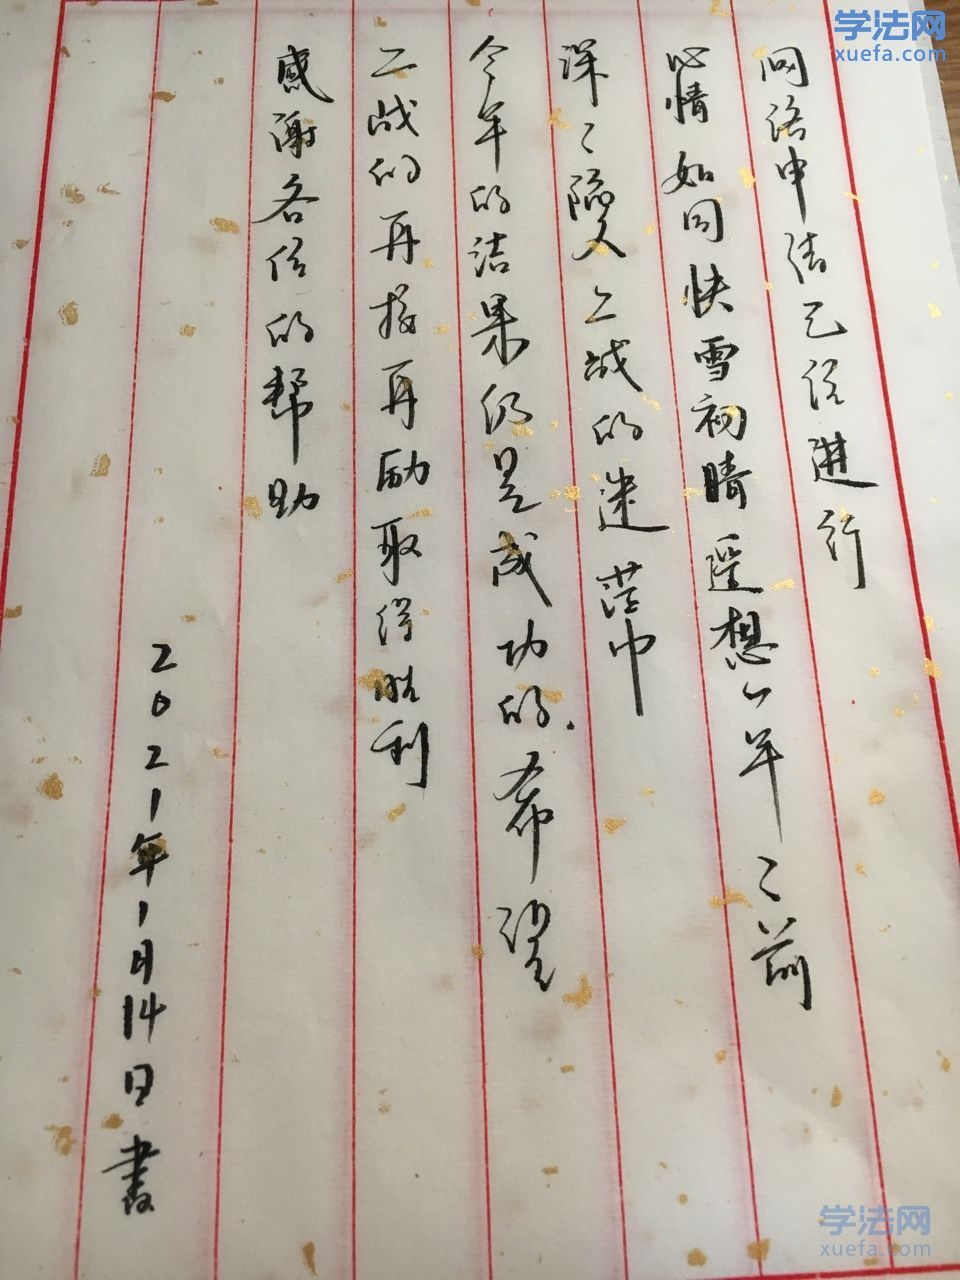 网络申请已经进行
心情如同快雪初晴遥想一年之前
深深陷入二战的迷茫中
今年的结果仍是成功的.希望
二战的再接再励取得胜利
感谢各位的帮助
2021年1月14日书
学法网
xuefa.com
学法网
xuefa.com